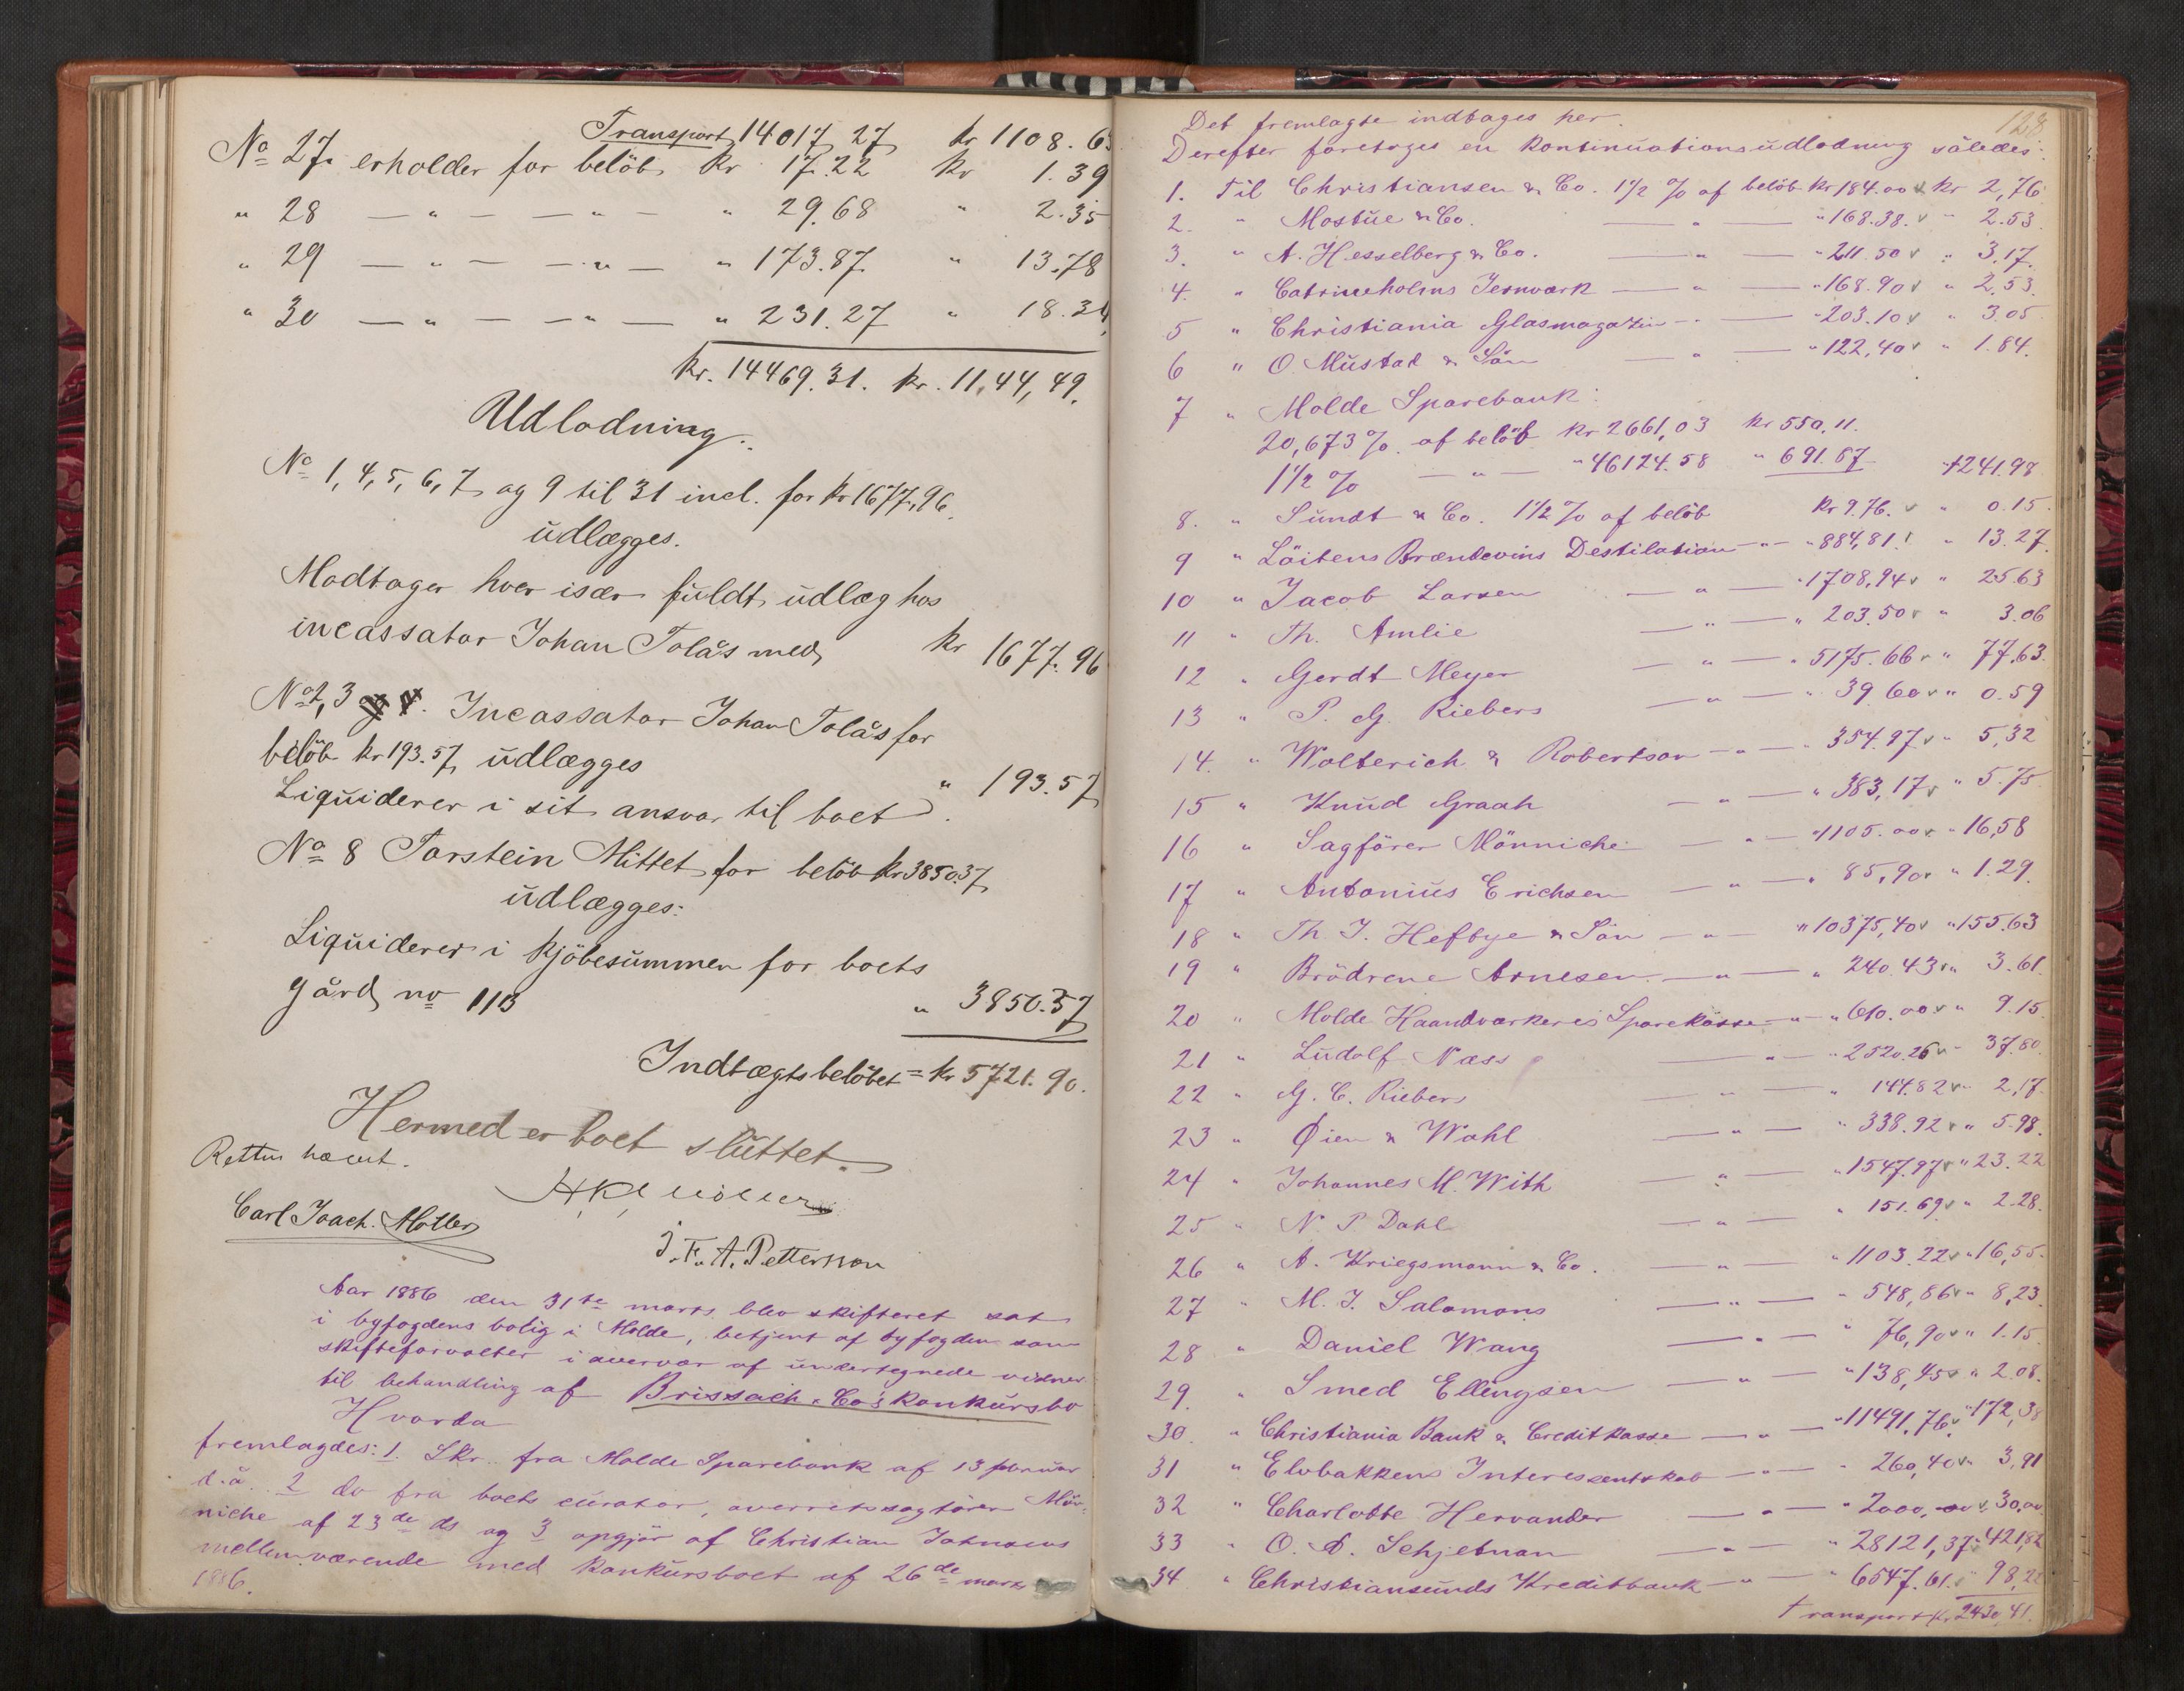 Transport 14017,27 kr 1108.63
No 27 erholder for belöb kr 17.22 kr 1.39
" 28 — " — — " — " 29.68 " 2.35
" 29 — " — — " — " 173.87 " 13.78
" 30 — " — — " — " 231.27 " 18.34
kr. 14469.31. kr. 11,44,49.
Udlodning.
No 1, 4, 5, 6, 7 og 9 til 31 incl. for kr 1677,96
udlægges.
Modtager hver især fuldt udlæg hos
incassator Johan Tolås med kr 1677.96
No 2, 3 og 4. Incassator Johan Tolås for
belöb kr 193.57 udlægges
Liquiderer i sit ansvar til boet " 193.57
No 8 Torstein Mittet for belöb kr 3850.37
udlægges:
Liquiderer i kjöbesummen for boets
gård no 113 " 3850.37
Indtægtsbelöbet = kr 5721.90.
Hermed er boet sluttet.
Retten hævet.
Carl Joach. Motter
J. F. A. Pettersson
Aar 1886 den 31te marts blev skifteret sat
i byfogdens bolig i Molde, betjent af byfogden som
skifteforvalter i overvær af undertegnede vidner
til behandling af Brissach & Co's konkursbo
Hvorda
fremlagdes: 1. Skr. fra Molde Sparebank af 13 februar
d. å. 2 do fra boets curator, overretssagförer Mön-
niche af 23de ds og 3 opgjör af Christian Johnsens
mellemværende med konkursboet af 26de marts
1886.
128
Det fremlagte indtages her.
Derefter foretages en kontinuationsudlodning således:
1. Til Christiansen & Co. 1 1/2 % af belöb kr 184.00 kr 2,76
2. " Mostue & Co. — " — " 168.38. " 2.53
3. " A. Hesselberg & Co. — " — " 211.50 " 3,17.
4. " Catrineholms Jernværk — " — " 168.90 " 2,53.
5 " Christiania Glasmagazin — " — " 203.10 " 3.05
6 " O. Mustad & Sön — " — " 122,40 " 1.84.
7 " Molde Sparebank:
20,673 % af belöb kr 2661,03 kr 550,11.
1 1/2 % — " — " 46124.58 " 691.87 " 1241.98
8. " Sundt & Co. 1 1/2 % af belöb kr 9.76. " 0.15.
9 " Löitens Brændevins Destilation — " — " 884,81 " 13.27.
10 " Jacob Larsen — " — " 1708,94 " 25.63
11 " Th. Amlie — " — " 203.50 " 3.06
12 " Gerdt Meyer — " — " 5175.66 " 77,63.
13 " P. G. Riebers — " — " 39.60 " 0.59
14. " Wolterich & Robertson — " — " 354.97 " 5,32
15 " Knud Graah — " — " 383,17 " 5.75
16 " Sagförer Mönniche — " — " 1105.00 " 16,58
17 " Antonius Erichsen — " — " 85,90 " 1.29.
18 " Th. J. Heftye & Sön — " — " 10375,40 " 155.63
19 " Brödrene Arnesen — " — " 240.43 " 3.61.
20 " Molde Haandværkeres Sparekasse — " — " 610.00 " 9.15.
21 " Ludolf Næss — " — " 2520.26 " 37.80.
22 " G. C. Riebers — " — " 144.82 " 2,17.
23 " Øien & Wahl — " — " 338.92 " 5.98.
24 " Johannes M. With — " — " 1547.97 " 23.22
25 " N. P. Dahl — " — " 151.69 " 2.28.
26 " A. Kriegsmann & Co. — " — " 1103.22 " 16,55.
27 " M. J. Salomons — " — " 548,86 " 8,23.
28 " Daniel Wang — " — " 76,90 " 1.15.
29. " Smed Ellingsen — " — " 138,45 " 2.08.
30. " Christiania Bank & Creditkasse — " — " 11491,76 " 172,38
31 " Elvbakkens Interessentskab — " — " 260,40 " 3,91
32 " Charlotte Hervander — " — " 2000,00 " 30,00
33 " O. A. Schjetnan — " — " 28121,37 " 421,82
34 " Christiansunds Kreditbank — " — " 6547.61. " 98,22
Transport kr 2430,41.